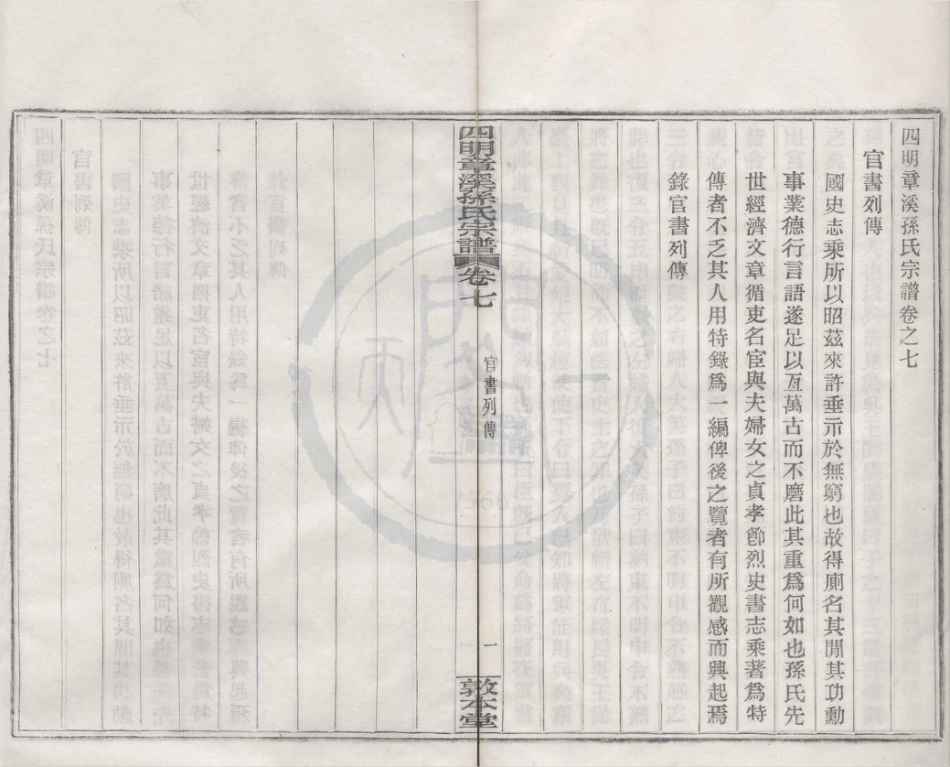 四明章溪孫氏宗譜卷之七
官書列傳
國史志乘所以昭茲來許垂示於無窮也故得廁名其閒其功勳
事業德行言語遂足以亙萬古而不磨此其重爲何如也孫氏先
世經濟文章循吏名宦與夫婦女之貞孝節烈史書志乘著爲特
傳者不乏其人用特錄爲一編俾後之覽者有所觀感而興起焉
錄官書列傳
四明章溪孫氏宗譜 卷七 官書列傳 一 敦本堂